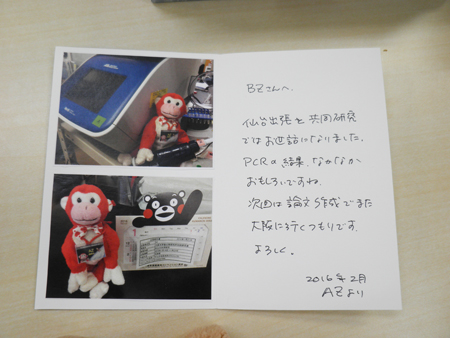 BZさんへ.
仙台出張と共同研究
ではお世話になりました.
PCRの結果、なかなか
おもしろいですね.
次回は論文作成でまた
大阪に行くつもりです.
よろしく。
2016年2月
AZより